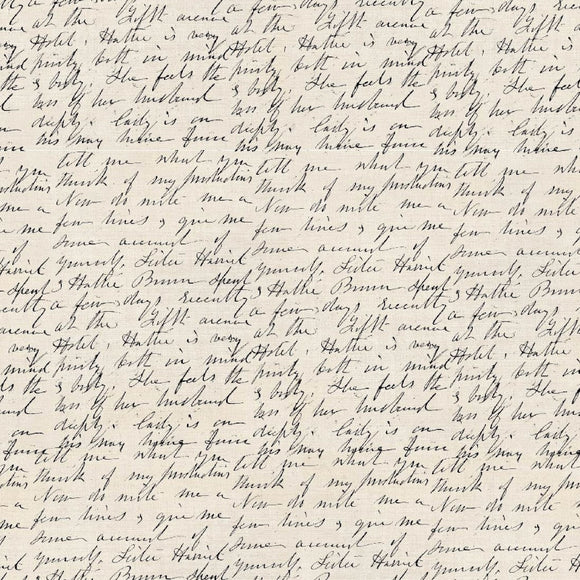 a few days recently a few days recently
at the Fifth avenue at the Fifth avenue at the Fifth
very Hotel, Hattie is very Hotel, Hattie is very Hotel, Hattie is
mind purity both in mind purity both in mind purity both in
the & body. She feels the & body. She feels the & body. She
loss of her husband loss of her husband loss of her
deeply. Lady is on deeply. Lady is on deeply. Lady
his way home from his way home from his way
you tell me what you tell me what you tell me what
productions think of my productions think of my productions think of my
me a Now do write me a Now do write me a Now do write
few lines & give me few lines & give me few lines & give
some account of some account of some account
Harriet yourself, Sister Harriet yourself, Sister Harriet yourself, Sister
spent & Hattie Brown spent & Hattie Brown spent & Hattie Brown
recently a few days recently a few days recently a few days
avenue at the Fifth avenue at the Fifth avenue at the Fifth
very Hotel, Hattie is very Hotel, Hattie is very Hotel, Hattie is
mind purity both in mind purity both in mind purity both in
the & body. She feels the & body. She feels the & body. She
loss of her husband loss of her husband loss of her
deeply. Lady is on deeply. Lady is on deeply. Lady
from his way home from his way home from his way home
you tell me what you tell me what you tell me what
think of my productions think of my productions think of my
Now do write me a Now do write me a Now do write
few lines & give me few lines & give me few lines & give
some account of some account of some account
yourself, Sister Harriet yourself, Sister Harriet yourself, Sister
& Hattie Brown spent & Hattie Brown spent & Hattie Brown